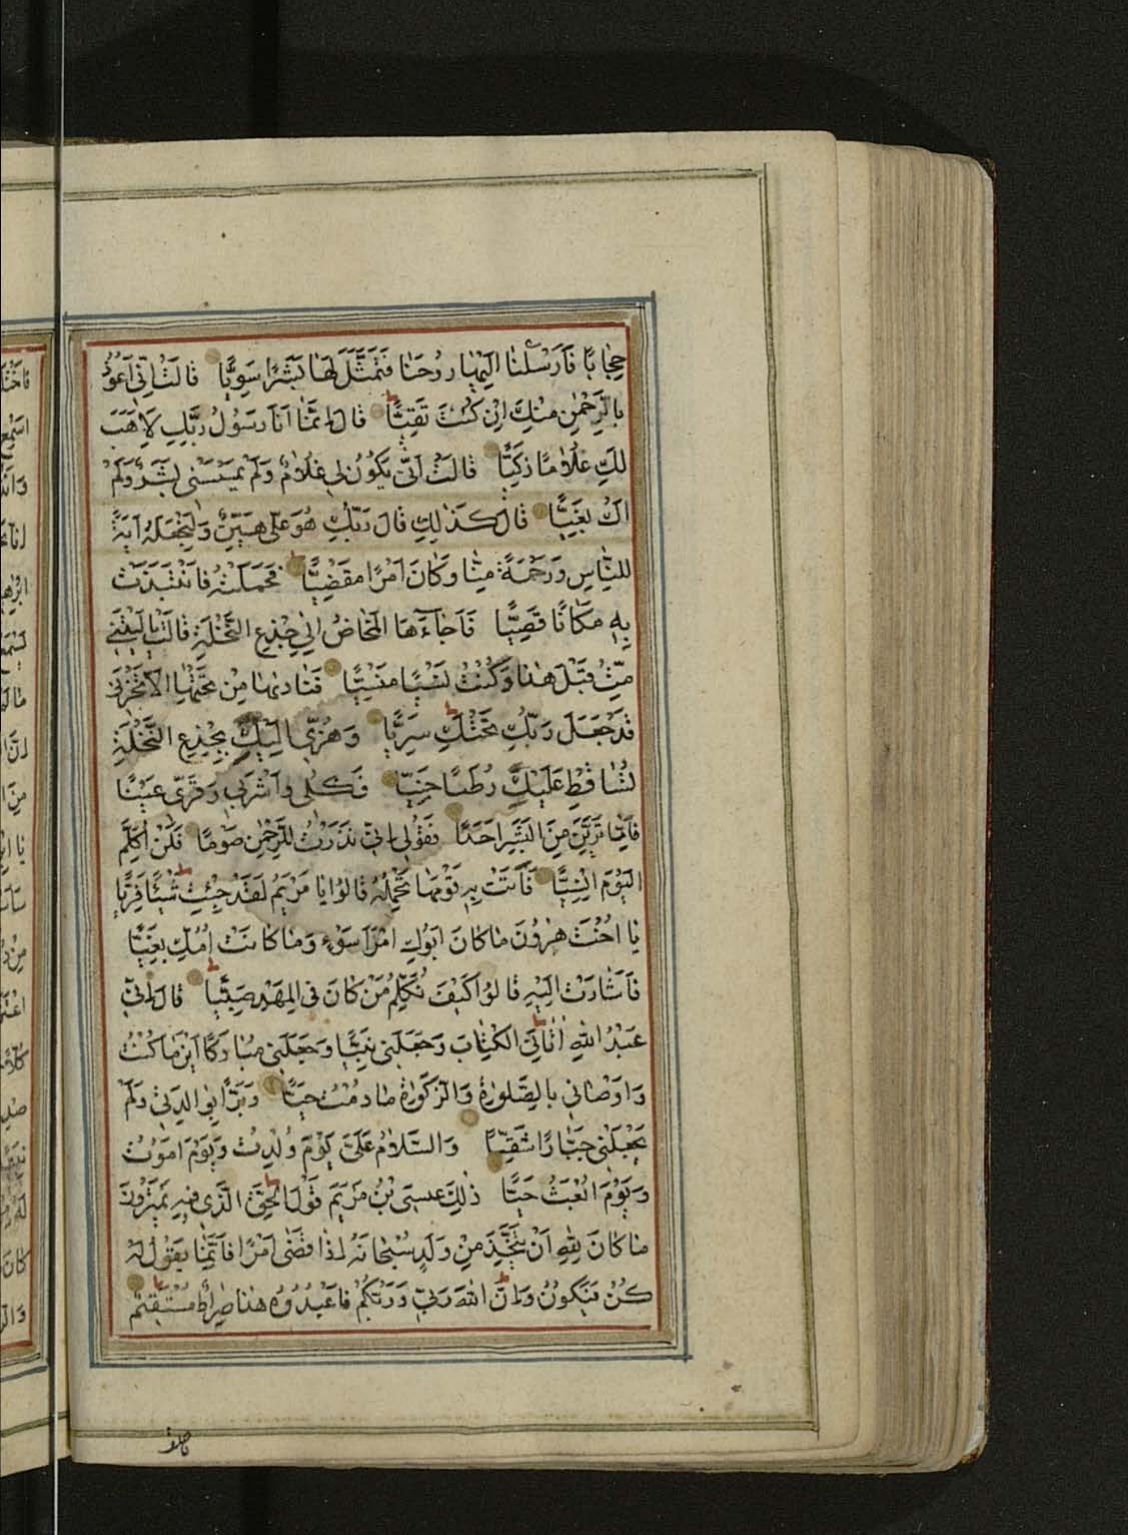 حِجَابًا فَاَرْسَلْنَا اِلَيْهَا رُوحَنَا فَتَمَثَّلَ لَهَا بَشَرًا سَوِيًّا قَالَتْ اِنّٖى اَعُوذُ
بِالرَّحْمٰنِ مِنْكَ اِنْ كُنْتَ تَقِيًّا قَالَ اِنَّمَا اَنَا رَسُولُ رَبِّكِ لِاَهَبَ
لَكِ غُلَامًا زَكِيًّا قَالَتْ اَنّٰى يَكُونُ لِى غُلَامٌ وَلَمْ يَمْسَسْنِى بَشَرٌ وَلَمْ
اَكُ بَغِيًّا قَالَ كَذٰلِكِ قَالَ رَبُّكِ هُوَ عَلَىَّ هَيِّنٌ وَلِنَجْعَلَهُ اٰيَةً
لِلنَّاسِ وَرَحْمَةً مِنَّا وَكَانَ اَمْرًا مَقْضِيًّا فَحَمَلَتْهُ فَانْتَبَذَتْ
بِهِ مَكَانًا قَصِيًّا فَاَجَاءَهَا الْمَخَاضُ اِلٰى جِذْعِ النَّخْلَةِ قَالَتْ يَا لَيْتَنِى
مِتُّ قَبْلَ هٰذَا وَكُنْتُ نَسْيًا مَنْسِيًّا فَنَادٰيهَا مِنْ تَحْتِهَا اَلَّا تَحْزَنِى
قَدْ جَعَلَ رَبُّكِ تَحْتَكِ سَرِيًّا وَهُزِّى اِلَيْكِ بِجِذْعِ النَّخْلَةِ
تُسَاقِطْ عَلَيْكِ رُطَبًا جَنِيًّا فَكُلِى وَاشْرَبِى وَقَرِّى عَيْنًا
فَاِمَّا تَرَيِنَّ مِنَ الْبَشَرِ اَحَدًا فَقُولِى اِنّٖى نَذَرْتُ لِلرَّحْمٰنِ صَوْمًا فَلَنْ اُكَلِّمَ
الْيَوْمَ اِنْسِيًّا فَاَتَتْ بِهِ قَوْمَهَا تَحْمِلُهُ قَالُوا يَا مَرْيَمُ لَقَدْ جِئْتِ شَيْئًا فَرِيًّا
يَا اُخْتَ هٰرُونَ مَا كَانَ اَبُوكِ امْرَاَ سَوْءٍ وَمَا كَانَتْ اُمُّكِ بَغِيًّا
فَاَشَارَتْ اِلَيْهِ قَالُوا كَيْفَ نُكَلِّمُ مَنْ كَانَ فِى الْمَهْدِ صَبِيًّا قَالَ اِنّٖى
عَبْدُ اللّٰهِ اٰتَانِىَ الْكِتَابَ وَجَعَلَنِى نَبِيًّا وَجَعَلَنِى مُبَارَكًا اَيْنَ مَا كُنْتُ
وَاَوْصَانِى بِالصَّلٰوةِ وَالزَّكٰوةِ مَا دُمْتُ حَيًّا وَبَرًّا بِوَالِدَتِى وَلَمْ
يَجْعَلْنِى جَبَّارًا شَقِيًّا وَالسَّلَامُ عَلَىَّ يَوْمَ وُلِدْتُ وَيَوْمَ اَمُوتُ
وَيَوْمَ اُبْعَثُ حَيًّا ذٰلِكَ عِيسَى بْنُ مَرْيَمَ قَوْلَ الْحَقِّ الَّذِى فِيهِ يَمْتَرُونَ
مَا كَانَ لِلّٰهِ اَنْ يَتَّخِذَ مِنْ وَلَدٍ سُبْحَانَهُ اِذَا قَضٰى اَمْرًا فَاِنَّمَا يَقُولُ لَهُ
كُنْ فَيَكُونُ وَاِنَّ اللّٰهَ رَبّٖى وَرَبُّكُمْ فَاعْبُدُوهُ هٰذَا صِرَاطٌ مُسْتَقِيمٌ